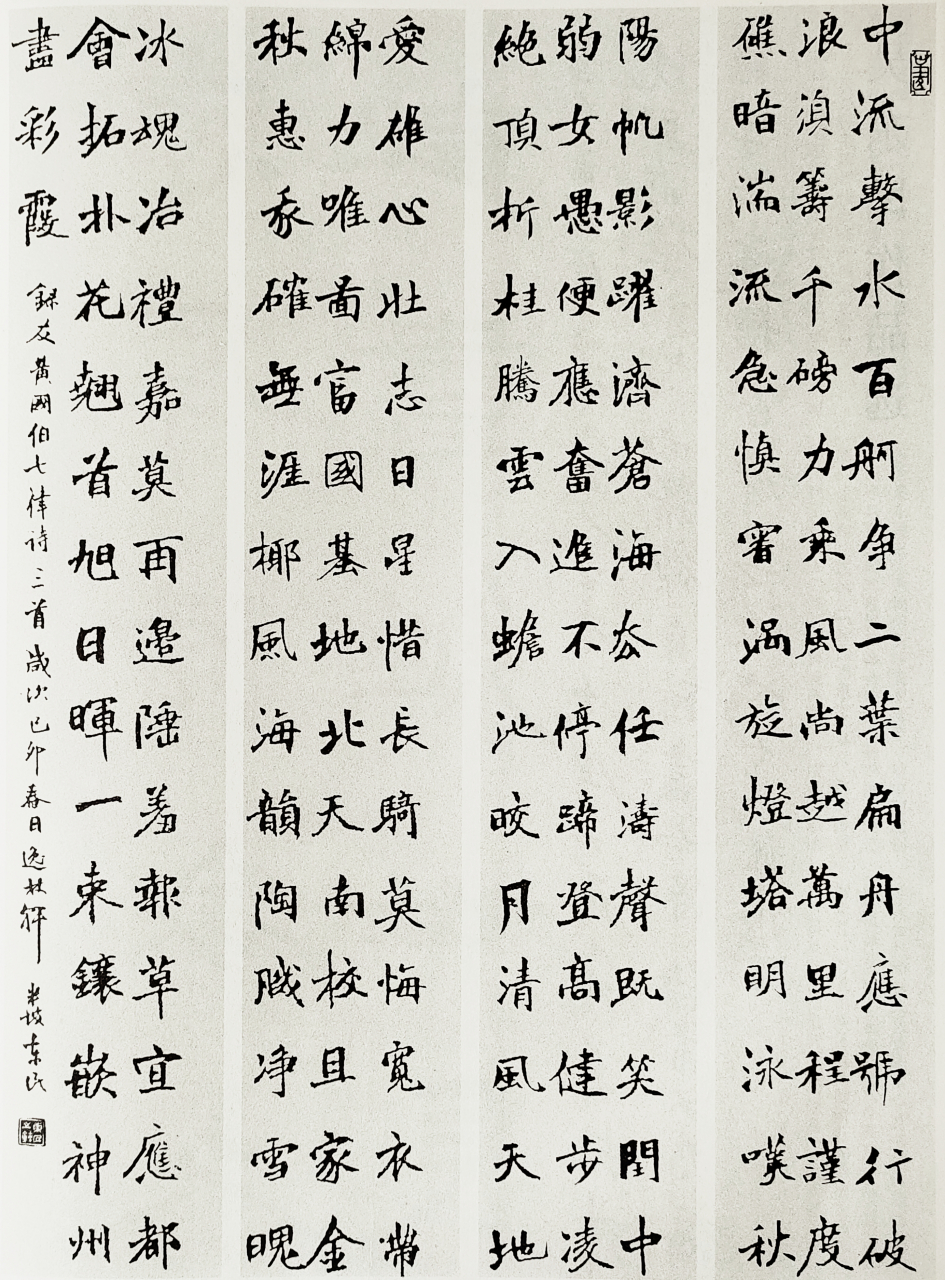 中流擊水百舸争二葉扁舟應號行破
浪須籌千磅力乘風尚越萬里程謹度
礁暗湍流急慎審渦旋燈塔明泳嘆秋
陽帆影躍濟蒼海夯任濤聲既笑閏中
弱女愚便應奮進不停蹄登高健步凌
絶頂折桂騰雲入蟾池皎月清風天地
愛雄心壯志日星惜長騎莫悔寬衣帶
綿力唯啚富國基地北天南校且家金
秋惠我確無涯椰風海韻陶净雪魄
冰魂冶禮嘉莫再邊陲羞報草宜應都
會拓朴花翹首旭日暉一束鑲嵌神州
盡彩霞
錄友黄國伯七律詩三首歲次已卯春日逸林軒 半坡東民